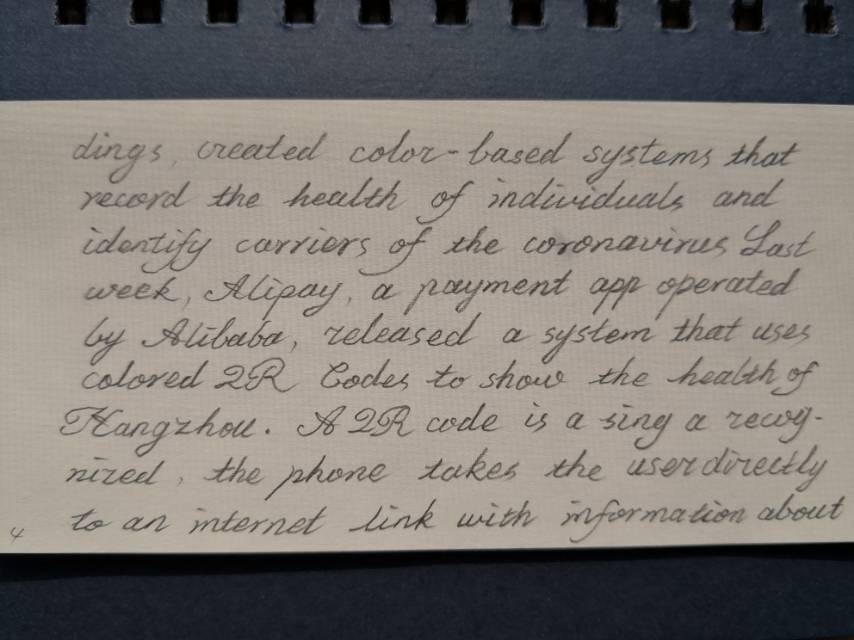 dings, created color-based systems that
record the health of individuals and
identify carriers of the coronavirus Last
week, Alipay, a payment app operated
by Alibaba, released a system that uses
colored QR Codes to show the health of
Hangzhou. A QR code is a sing a recog-
nized, the phone takes the user directly
to an internet link with information about
4